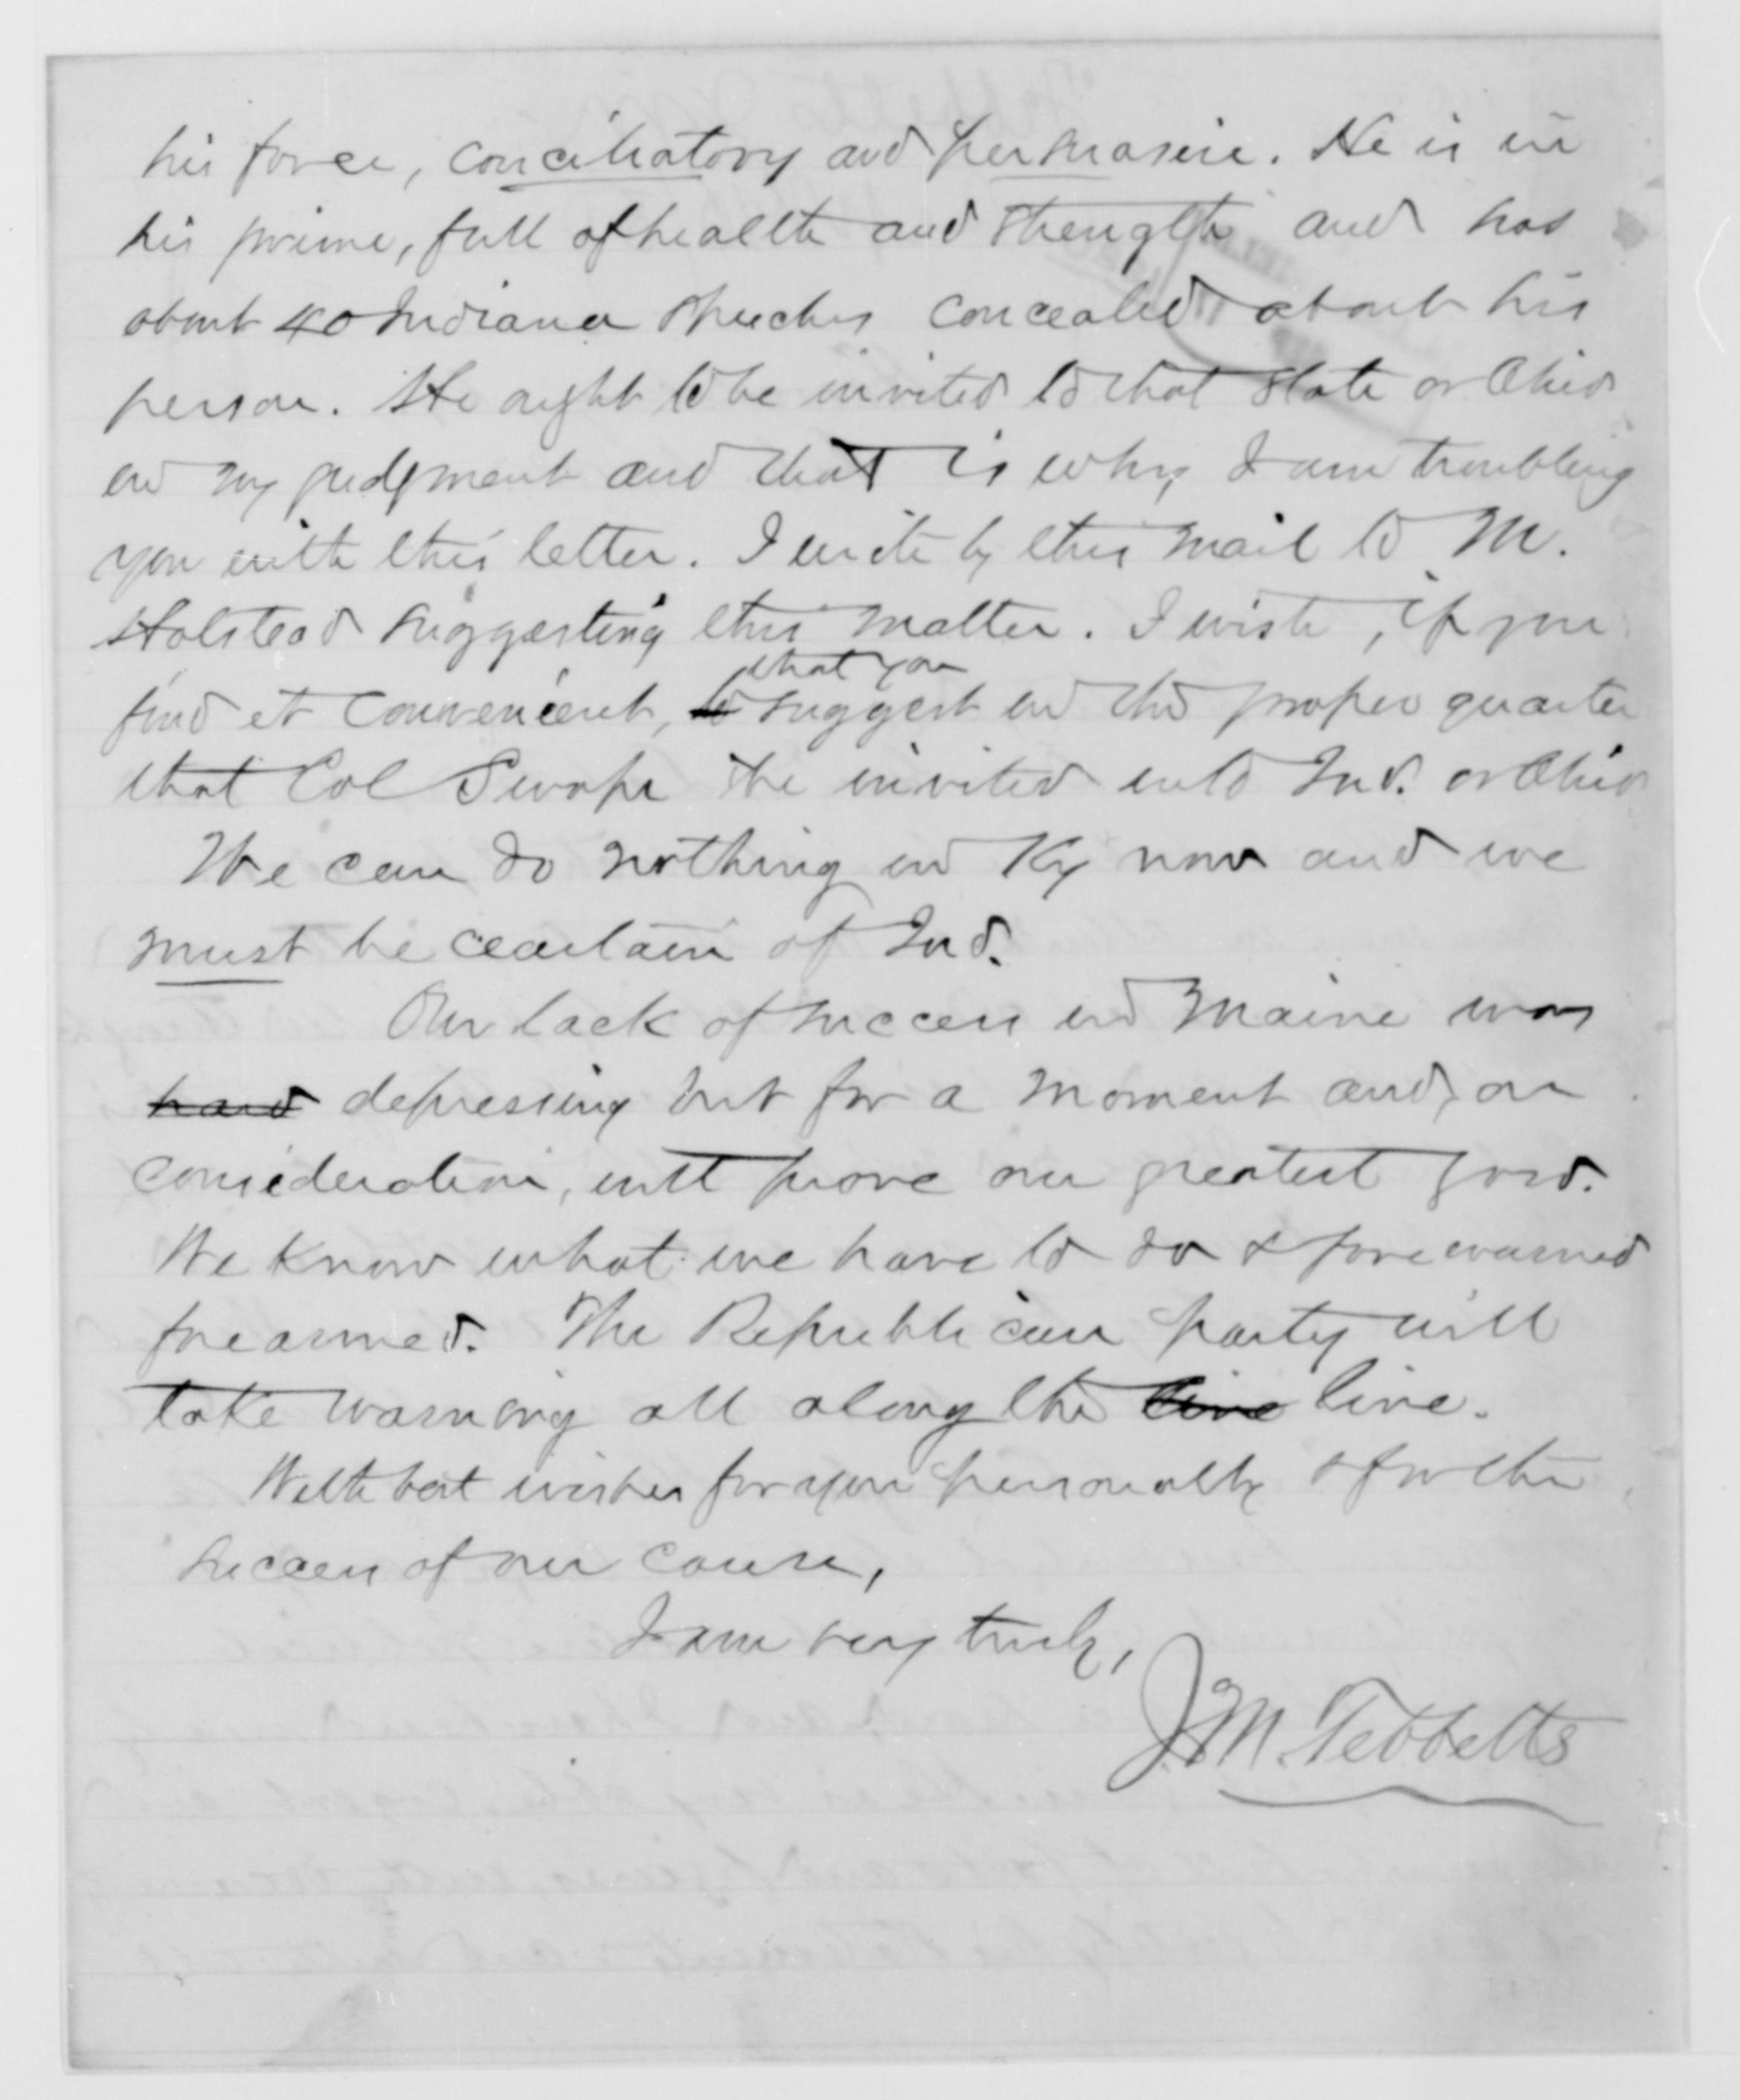 his force, conciliatory and persuasive. He is in
his prime, full of health and strength and has
about 40 Indiana speeches concealed about his
person. He ought to be invited to that State or Ohio
in my judgment and that is why I am troubling
you with this letter. I write by this mail to M.
Halstead suggesting this matter. I wish, if you
find it convenient, to that you suggest in the proper quarter
that Col Swope be invited into Ind. or Ohio
We can do nothing in Ky now and we
must be ceartain of Ind.
Our lack of success in Maine was
hard depressing but for a moment and, on
consideration, will prove our greatest good.
We know what we have to do & forewarned
forearmed. The Republican party will
take warning all along the line line.
With best wishes for you personally & for the
success of our cause,
I am very truly,
J. M. Tebbetts